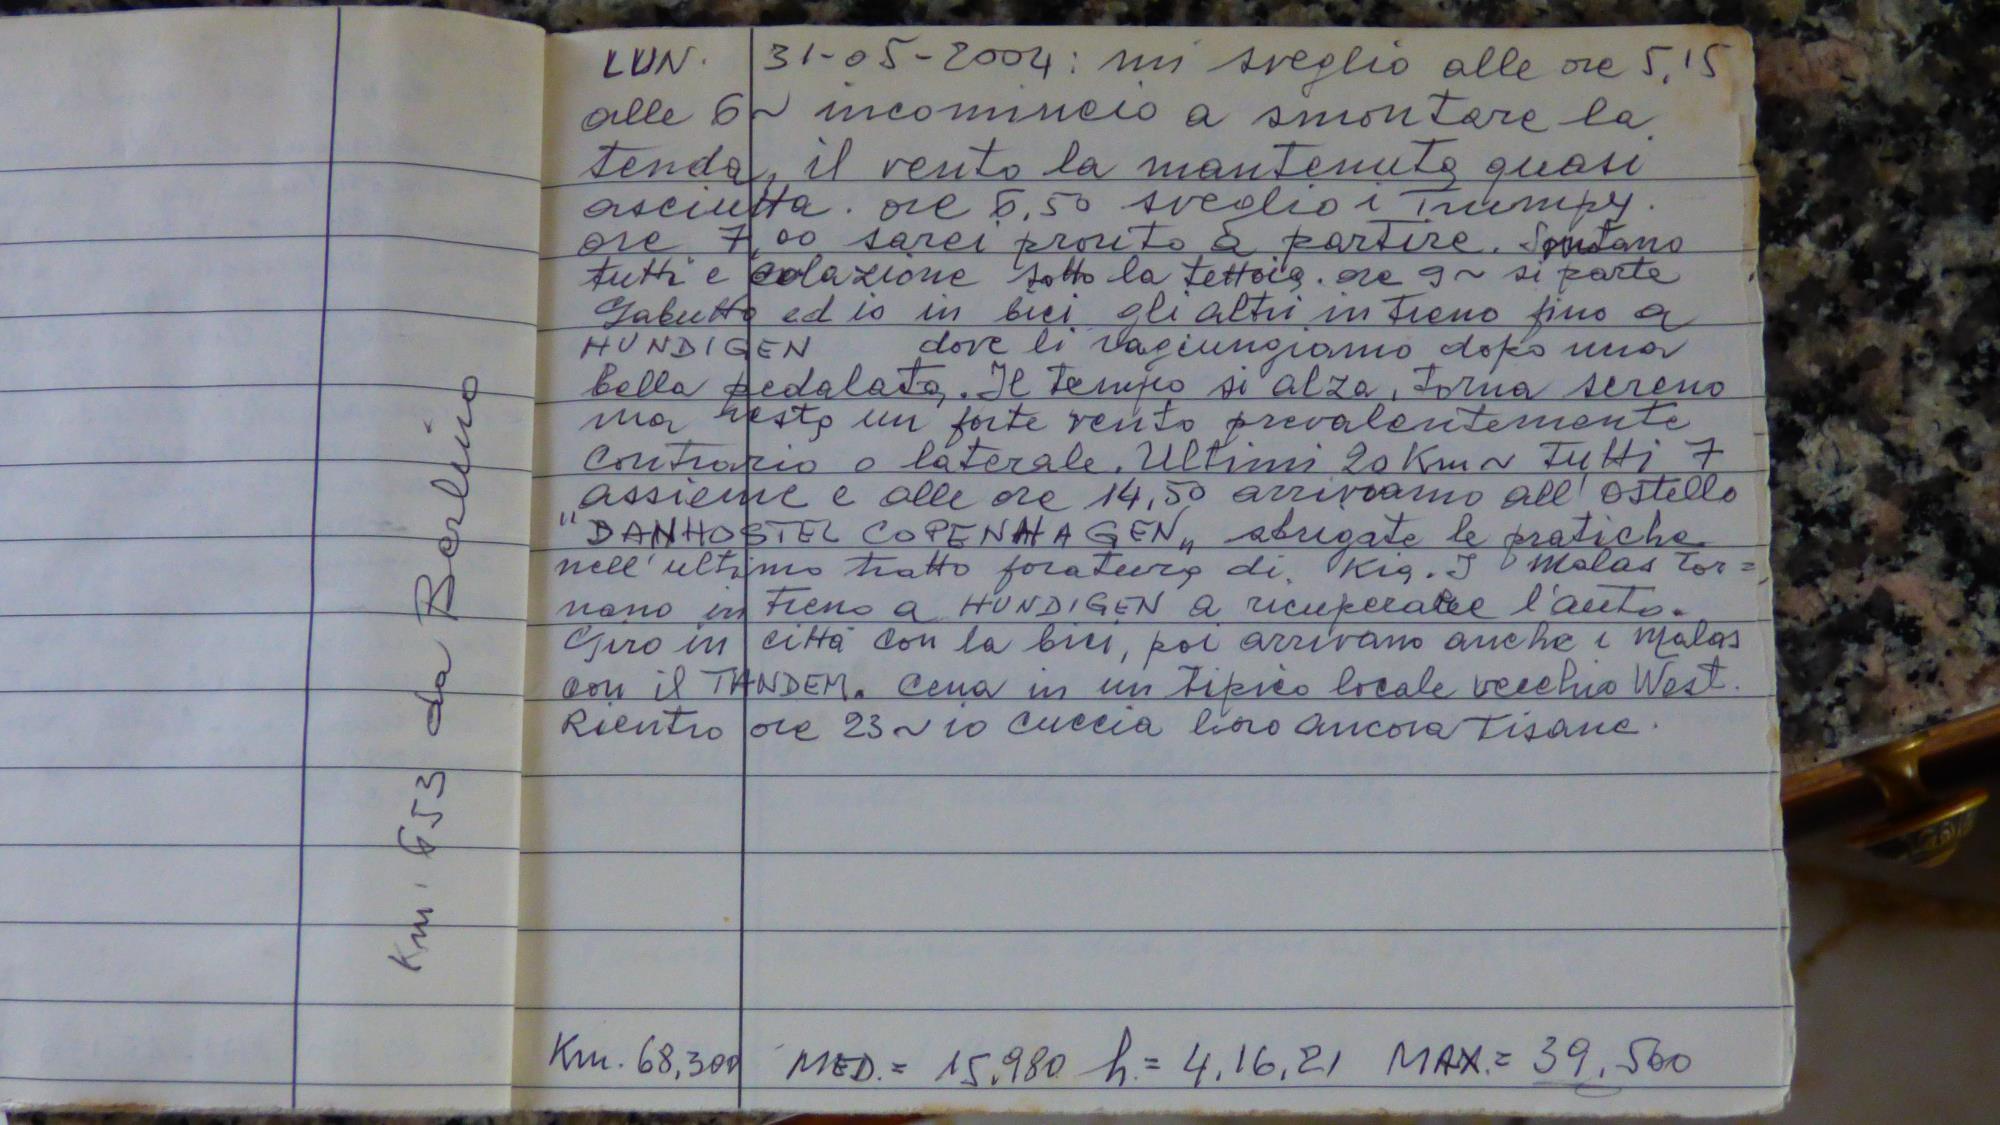 Km. 653 da Berlino
LUN. 31-05-2004: mi sveglio alle ore 5,15
alle 6~ incomincio a smontare la
tenda, il vento la mantenuta quasi
asciutta. ore 6,50 sveglio i Trumpy.
ore 7,00 sarei pronto a partire. Smontano
tutti e colazione sotto la tettoia. ore 9~ si parte
Gabutto ed io in bici gli altri in treno fino a
HUNDIGEN dove li ragiungiamo dopo una
bella pedalata. Il tempo si alza, torna sereno
ma resta un forte vento prevalentemente
contrario o laterale. Ultimi 20 Km~ tutti 7
assieme e alle ore 14,50 arriviamo all'Ostello
"DANHOSTEL COPENHAGEN" sbrigate le pratiche
nell'ultimo tratto foratura di. I Malas tor=
nano in treno a HUNDIGEN a ricuperare l'auto.
Giro in città con la bici, poi arrivano anche i Malas
con il TANDEM. Cena in un tipico locale vecchio West.
Rientro ore 23~ io cuccia loro ancora tisane.
Km. 68,300 MED.= 15,980 h.= 4,16,21 MAX.= 39,500